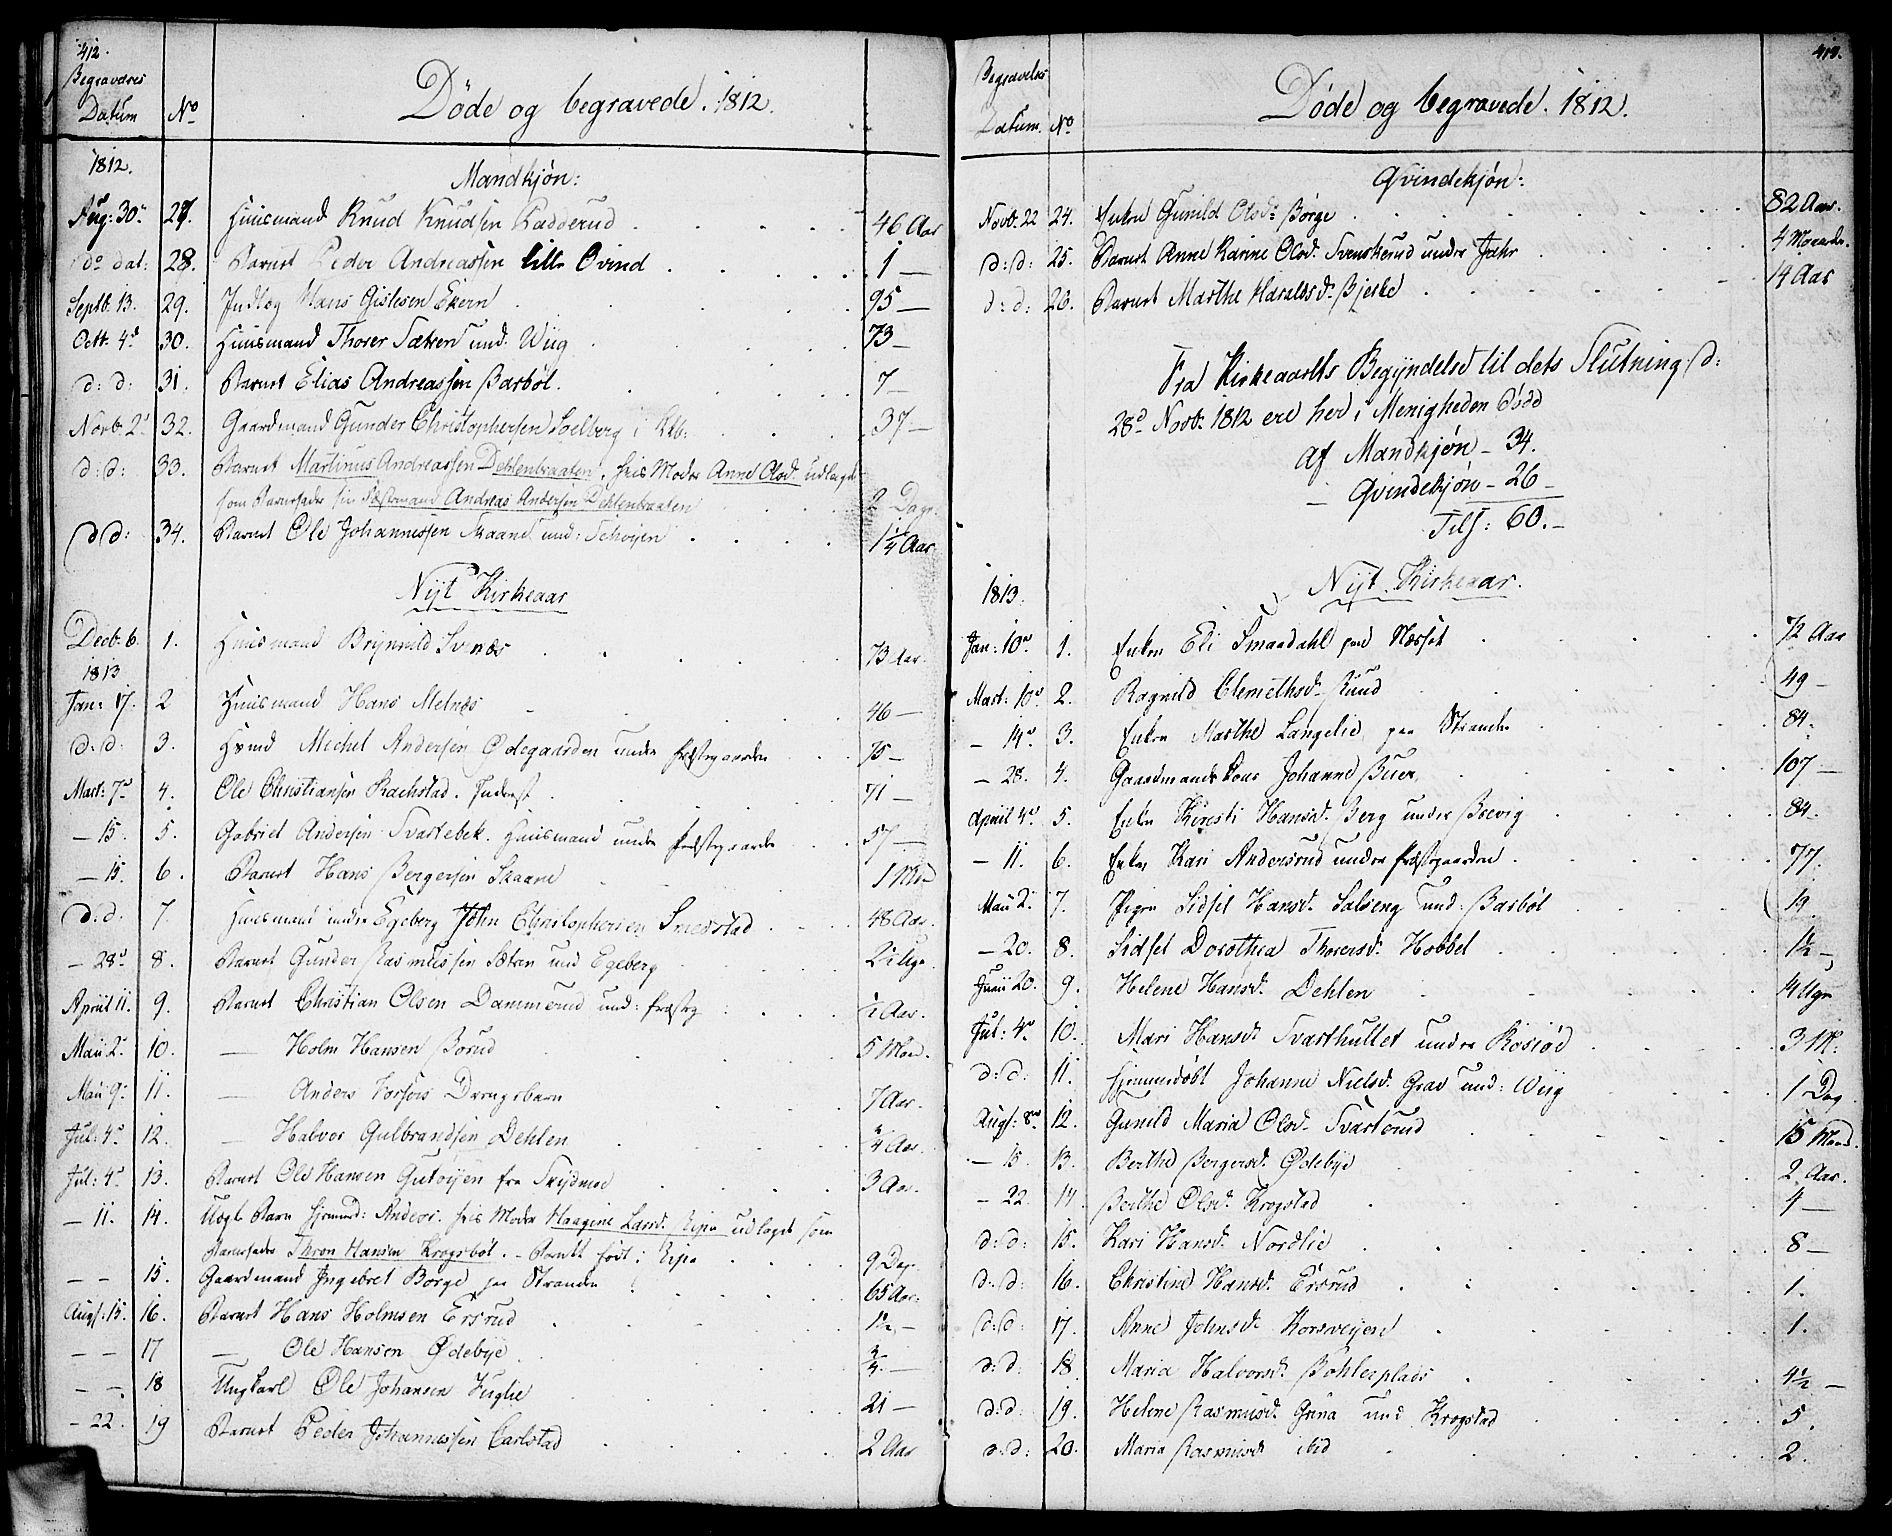 412.
Begravelses
Datum No
Døde og begravede. 1812.
1812.
Mandkjøn:
Aug: 30te 27. Huusmand Knud Knudsen Padderud 46 Aar
do dat: 28. Barnet Peder Andreassen lille Qvind 1 —
Septb. 13. 29. Indlæg Hans Gislesen Ekern 95 —
Octb. 4d 30. Huusmand Thorer Sætren und. Wiig 73 —
d: d: 31. Barnet Elias Andreassen Barbøl. 7 —
Novb. 2d 32. Gaardmand Gunder Christophersen Soelberg i 37 —
d: d: 33. Barnet Martinus Andreassen Dehlenbraaten, hvis Moder Anne Olsd. udlagde
som Barnefader sin Fæstemand Andreas Andersen Dehlenbraaten 2 Dage.
d: d: 34. Barnet Ole Johannessen Skaane und: Tehøyen 1 1/4 Aar
Nyt Kirkeaar
Decb. 6. 1. Huusmand Brynnild Svnæs 73 Aar.
1813
Jan: 17. 2 Huusmand Hans Melnæs 46 —
d: d: 3. Michel Andersen Ødegaarden under Præstegaarden 75 —
Mart: 7d 4. Ole Christiansen Rachstad. Inderst 71 —
— 15. 5. Gabriel Andersen Svartebek. Huusmand under Præstegaarden 57 —
— 15. 6. Barnet Hans Bergersen Skaane 1 Md
d: d. 7. Huusmand under Egeberg John Christophersen Smedstad 48 Aar.
— 28d 8. Barnet Gunder Rasmussen Sætren und Egeberg 2 Uge.
April 11. 9. Barnet Christian Olsen Dammerud und: Præsteg 1/2 Aar.
Maii 2d 10. — Holm Hansen Borud 5 Maan.
Maii 9. 11. — Anders Forfors Drengebarn 7 Aar.
Jul: 4d 12. — Halvor Gulbrandsen Dehlen /4 Aar.
Jul: 4d 13. Barnet Ole Hansen Gutøyen fra Skydmoe 3 Aar.
— 11. 14. Uægte Barn hjemmed: Anders. hvis Moder Haagine Larsd. Ripe udlagde som
Barnefader Thron Hansen Krogsbøl. — Barnet født i Ripe 9 Dage.
— — 15. Gaardmand Ingebret Borge paa Stranden 65 Aar.
Augs: 15. 16. Barnet Hans Holmsen Ersrud 1 1/2 —
— — 17 — Ole Hansen Ødebye 3/4 —
— — 18 Ungkarl Ole Johansen Fuglie 21 —
— 22. 19 Barnet Peder Johannessen Carlstad 2 Aar
413.
Begravelses
Datum. No
Døde og begravede. 1812.
Qvindekjøn:
Novb. 22 24. Enken Gunild Olsd. Børge 82 Aar.
d: d: 25. Barnet Anne Karine Olsd. Svenskerud under Jahr 4 Maaneder.
d: d: 26. Barnet Marthe Haraldsd. Bjerke 14 Aar
Fra Kirkeaarets Begyndelse til dets Slutning d:
28d Novb. 1812 ere her i Menigheden død
Af Mandkjøn — 34.
— Qvindekjøn — 26 —
Tils: 60. —
Nyt Kirkeaar.
1813.
Jan: 10d 1. Enken Eli Smaadahl ved Næsset 72 Aar
Mart: 10d 2. Ragnild Clemethsd. Ruud 49 —
— 14d 3. Enken Marthe Langelie paa Stranden 84.
— 28. 4. Gaardmands Kone Johanne Buer 107 —
April 4d 5. Enken Kirsti Hansd. Berg under Boevig 84.
— 11. 6. Enken Kari Andersrud under Præstegaarden 77.
Maii 2. 7. Pigen Sidsel Hansd. Salseng und: Barbøl 19.
— 20. 8. Sidsel Dorothea Thorersd. Hobbel 1 1/2 —
Junii 20. 9. Helene Hansd. Dehlen 14 Uger
Jul: 4d 10. Mari Hansd. Svarthullet under Rosiød 3 M:
d: d: 11. Hjemmedøbt Johanne Nielsd. Grav und: Wiig 1 Dag.
Augs: 8d 12. Gunild Maria Olsd. Svarterud 15 Maan.
— 15 13. Berthe Bergersd. Ødebye 2 Aar.
— 22 14 Berthe Olsd. Krogstad 4 —
d: d: 15. Kari Hansd. Nordlie 8 —
d: d: 16. Christine Hansd. Ersrud 1.
d: d: 17. Anne Johnsd. Korsveyen 1.
d: d. 18. Maria Halvorsd. Bøhlerplads 4 1/2 —
d: d: 19. Helene Rasmusd. Grina und Krogstad 5.
d: d: 20. Maria Rasmusd. ibid 2.